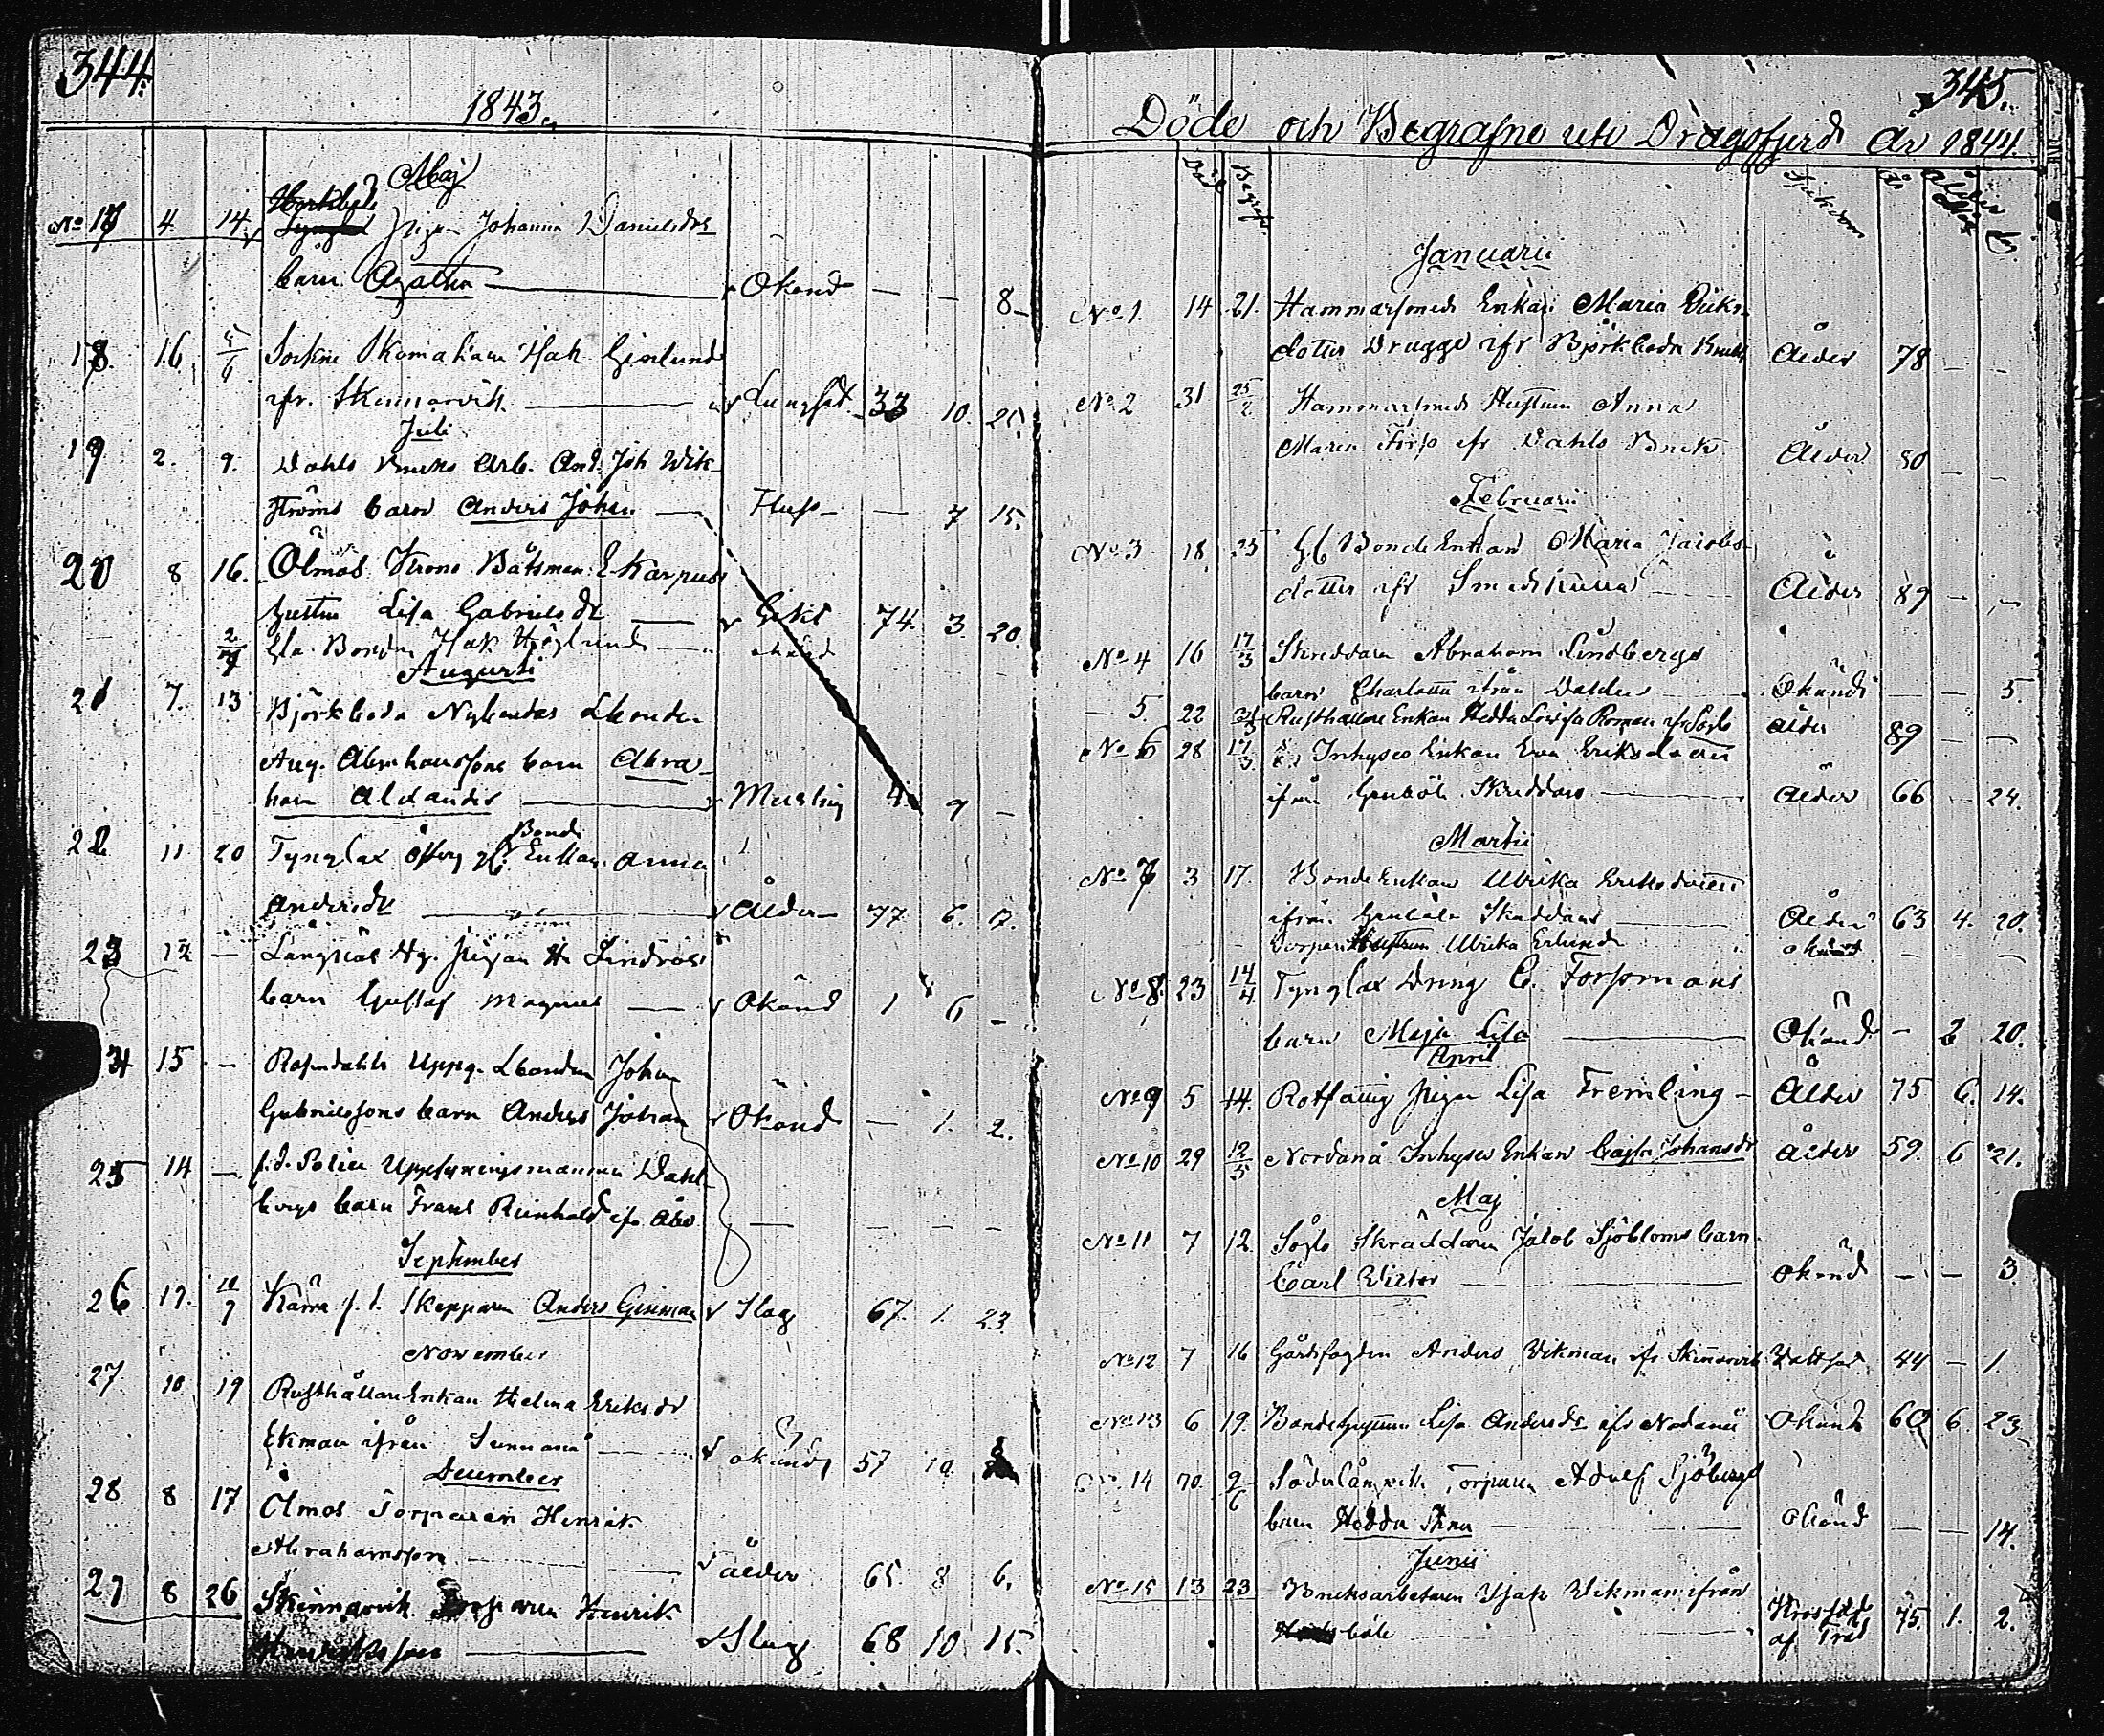 344.
1843.
Maj
No 17 4. 14. Pigan Johanna Danielsdr
barn Agatha Okänd — — 8
18. 16. 5/6 Sockne Skomakare Isak Ginlund
ifr. Skinnarvik Lungsot 33 10. 25.
Juli
19 2. 9. Dahls Bruks Arb. And. Joh. Wik-
ströms barn Anders Johan — — 7 15.
20 8 16. Ölmos Krono Båtsman E. Karpus
hustru Lisa Gabrielsdr 74. 3. 20.
Gla. Bonden Isak Höglund
Augusti
21 7. 13 Björkboda Nybondas Lbonden
Aug. Abrahamssons barn Abra-
ham Alexander 4. 9 —
22 11 20 Tynglax gl. Bonde Enkan Anna
Andersdr Ålder 77 6. 17.
23 12 — Långnäs Hg. Pigan H. Lindroos
barn Gustaf Magnus Okänd 1 6 —
24 15 — Rosendahls Uppg. Lbonden Johan
Gabrielssons barn Anders Johan Okänd — 1. 2.
25 14 — f.d. Police Uppsyningsmannen Dahl-
bergs barn Frans Reinhold ifr. Åbo — — — —
September
26 17. Kärra f.d. Skepparen Anders Ginman Slag 67. 1. 23.
November
27. 10 19 Rusthållare Enkan Helena Eriksdr
Ekman ifrån okänd 57 10.
December
28 8 17 Ölmos Torparen Henrik
Abrahamsson ålder 65. 8 6.
29 8 26 Skinnarvik Torparen Henrik
Henriksson Slag 68 10 15.
345.
Döde och Begrafne uti Dragsfjerd År 1844.
Död Begrafn. Sjukdom År
Januarii
No 1. 14 21. Hammarsmeds Enkan Maria Eriks-
dotter Drugge ifr Björkboda Bruk Ålder 78 — —
No 2 31 25/2 Hammarsmeds Hustrun Anna
Maria Forss ifr Dahls Bruk Ålder 80 — —
Februarii
No 3 18. 25 Gl. Bonde Enkan Maria Jacobs-
dotter ifr Ålder 89 — —
No 4 16 17/3 Skreddare Abraham Lindbergs
barn Charlotta ifrån Dahlen Okänd — — 5
— 5. 22 Rusthållare Enkan Hedda Lovisa Roman ifr Söglö ålder 89 — —
No 6 28 17/3 Inhyses Enkan Eva Eriksdotter
ifrån Genböle Skreddars Ålder 66 — 24.
Martii
No 7 3 17. Bonde Enkan Ulrika Eriksdotter
ifrån Genböle Skreddars Ålder 63 4. 20.
Torpare Hustrun Ulrika Erlund okänd — — —
No 8. 23 14/4 Tynglax Dreng C. Forssmans
barn Maja Lisa Okänd — 2 20.
April
No 9 5 14. Rotfattig Pigan Lisa Fremling Ålder 75 6. 14.
No 10 29 12/5 Nordanå Inhyses Enkan Cajsa Johansdr Ålder 59. 6 21.
Maj
No 11 7 12. Söglö Skräddaren Jacob Sjöbloms barn
Carl Victor okänd — — 3
No 12 7 16 Gårdsfogden Anders Wikman ifr Skinnarvik 44 — 1.
No 13 6 19. Bonde hustrun Lisa Andersdr ifr Nordanå Okänd 60 6. 23
No 14 9/6 Söderlångvik Torparen Adolf Sjöbergs
barn Hedda Stina Okänd — — 14.
Junii
No 15 13 23 Bruksarbetaren Isak Wikman ifrån
böle af Träd 75. 1. 2.